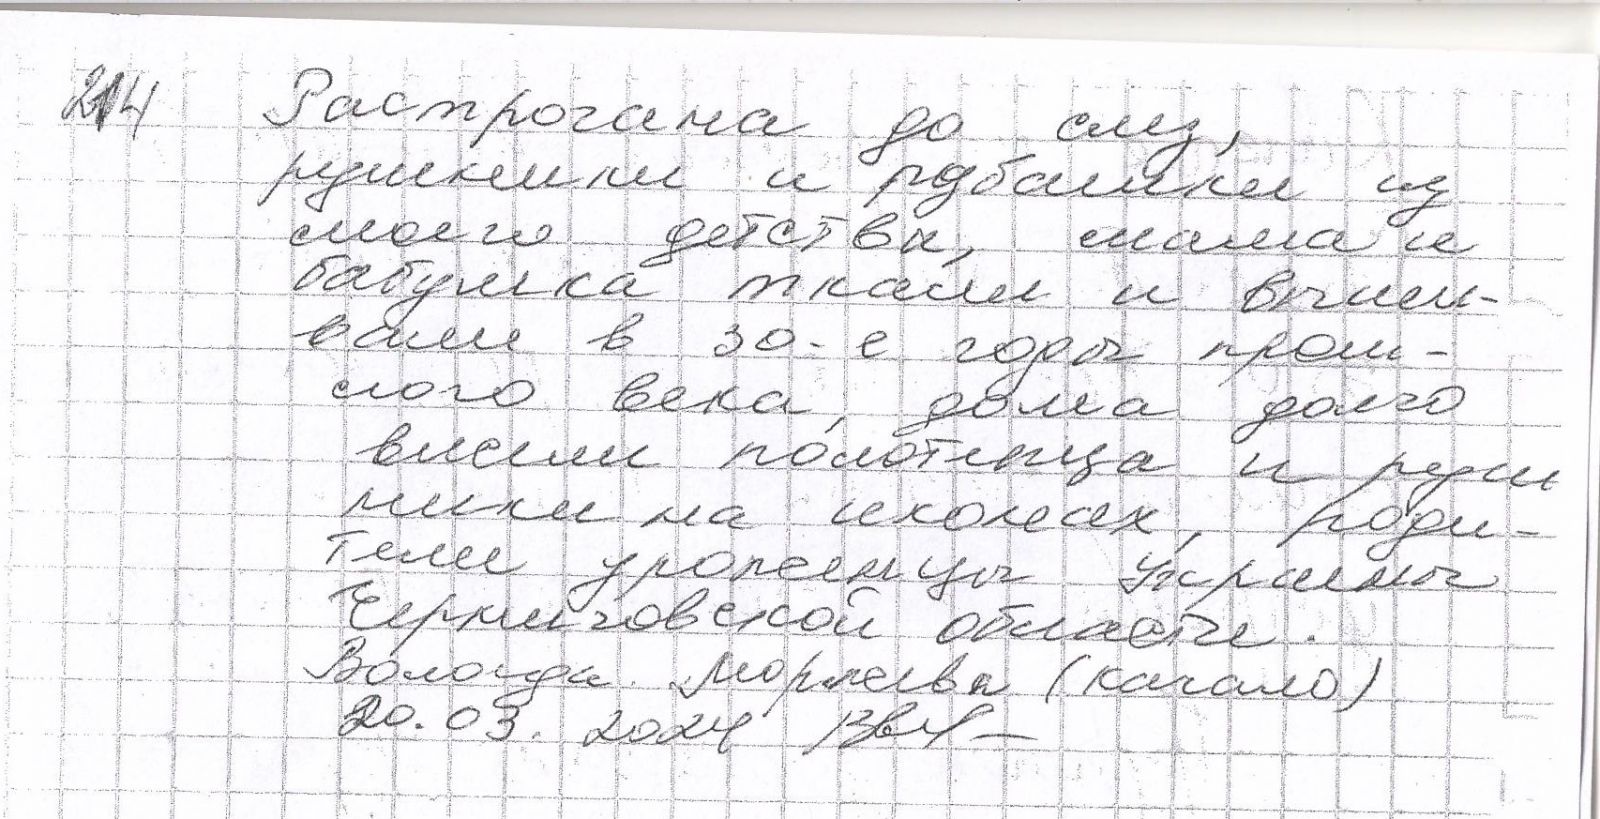 214 Растрогана до слез,
рушники и рубашки из
моего детства, мама и
бабушка ткали и выши-
вали в 30-е годы прош-
лого века, дома долго
висели полотенца и руш
ники на иконах, роди-
тели уроженцы Украины
Черниговской области.
Вологда. (Качало)
20.03.2024